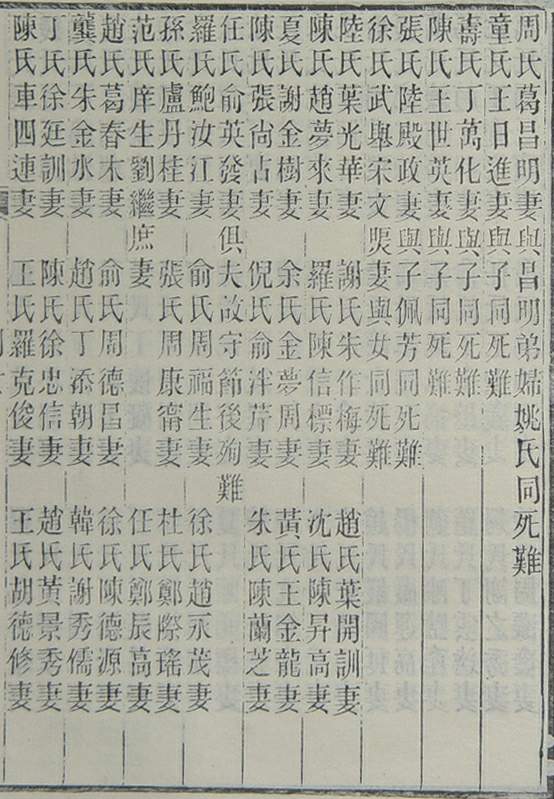 周氏葛昌明妻與昌明弟婦姚氏同死難
童氏王日進妻與子同死難
壽氏丁萬化妻與子同死難
陳氏王世英妻與子同死難
張氏陸殿政妻與子佩芳同死難
徐氏武舉宋文煚妻與女同死難
陸氏葉光華妻 謝氏朱作梅妻 趙氏葉開訓妻
陳氏趙夢來妻 羅氏陳信標妻 沈氏陳昇高妻
夏氏謝金樹妻 余氏金夢周妻 黃氏王金龍妻
陳氏張尙占妻 倪氏俞泮芹妻 朱氏陳蘭芝妻
任氏俞英發妻俱夫故守節後殉難
羅氏鮑汝江妻 俞氏周福生妻 徐氏趙永茂妻
孫氏盧丹桂妻 張氏周康甯妻 杜氏鄭際瑤妻
范氏庠生劉繼庶妻 任氏鄭辰高妻
趙氏葛春木妻 俞氏周德昌妻 徐氏陳德源妻
龔氏朱金水妻 趙氏丁添朝妻 韓氏謝秀儒妻
丁氏徐廷訓妻 陳氏徐忠信妻 趙氏黃景秀妻
陳氏車四連妻 王氏羅克俊妻 王氏胡德修妻